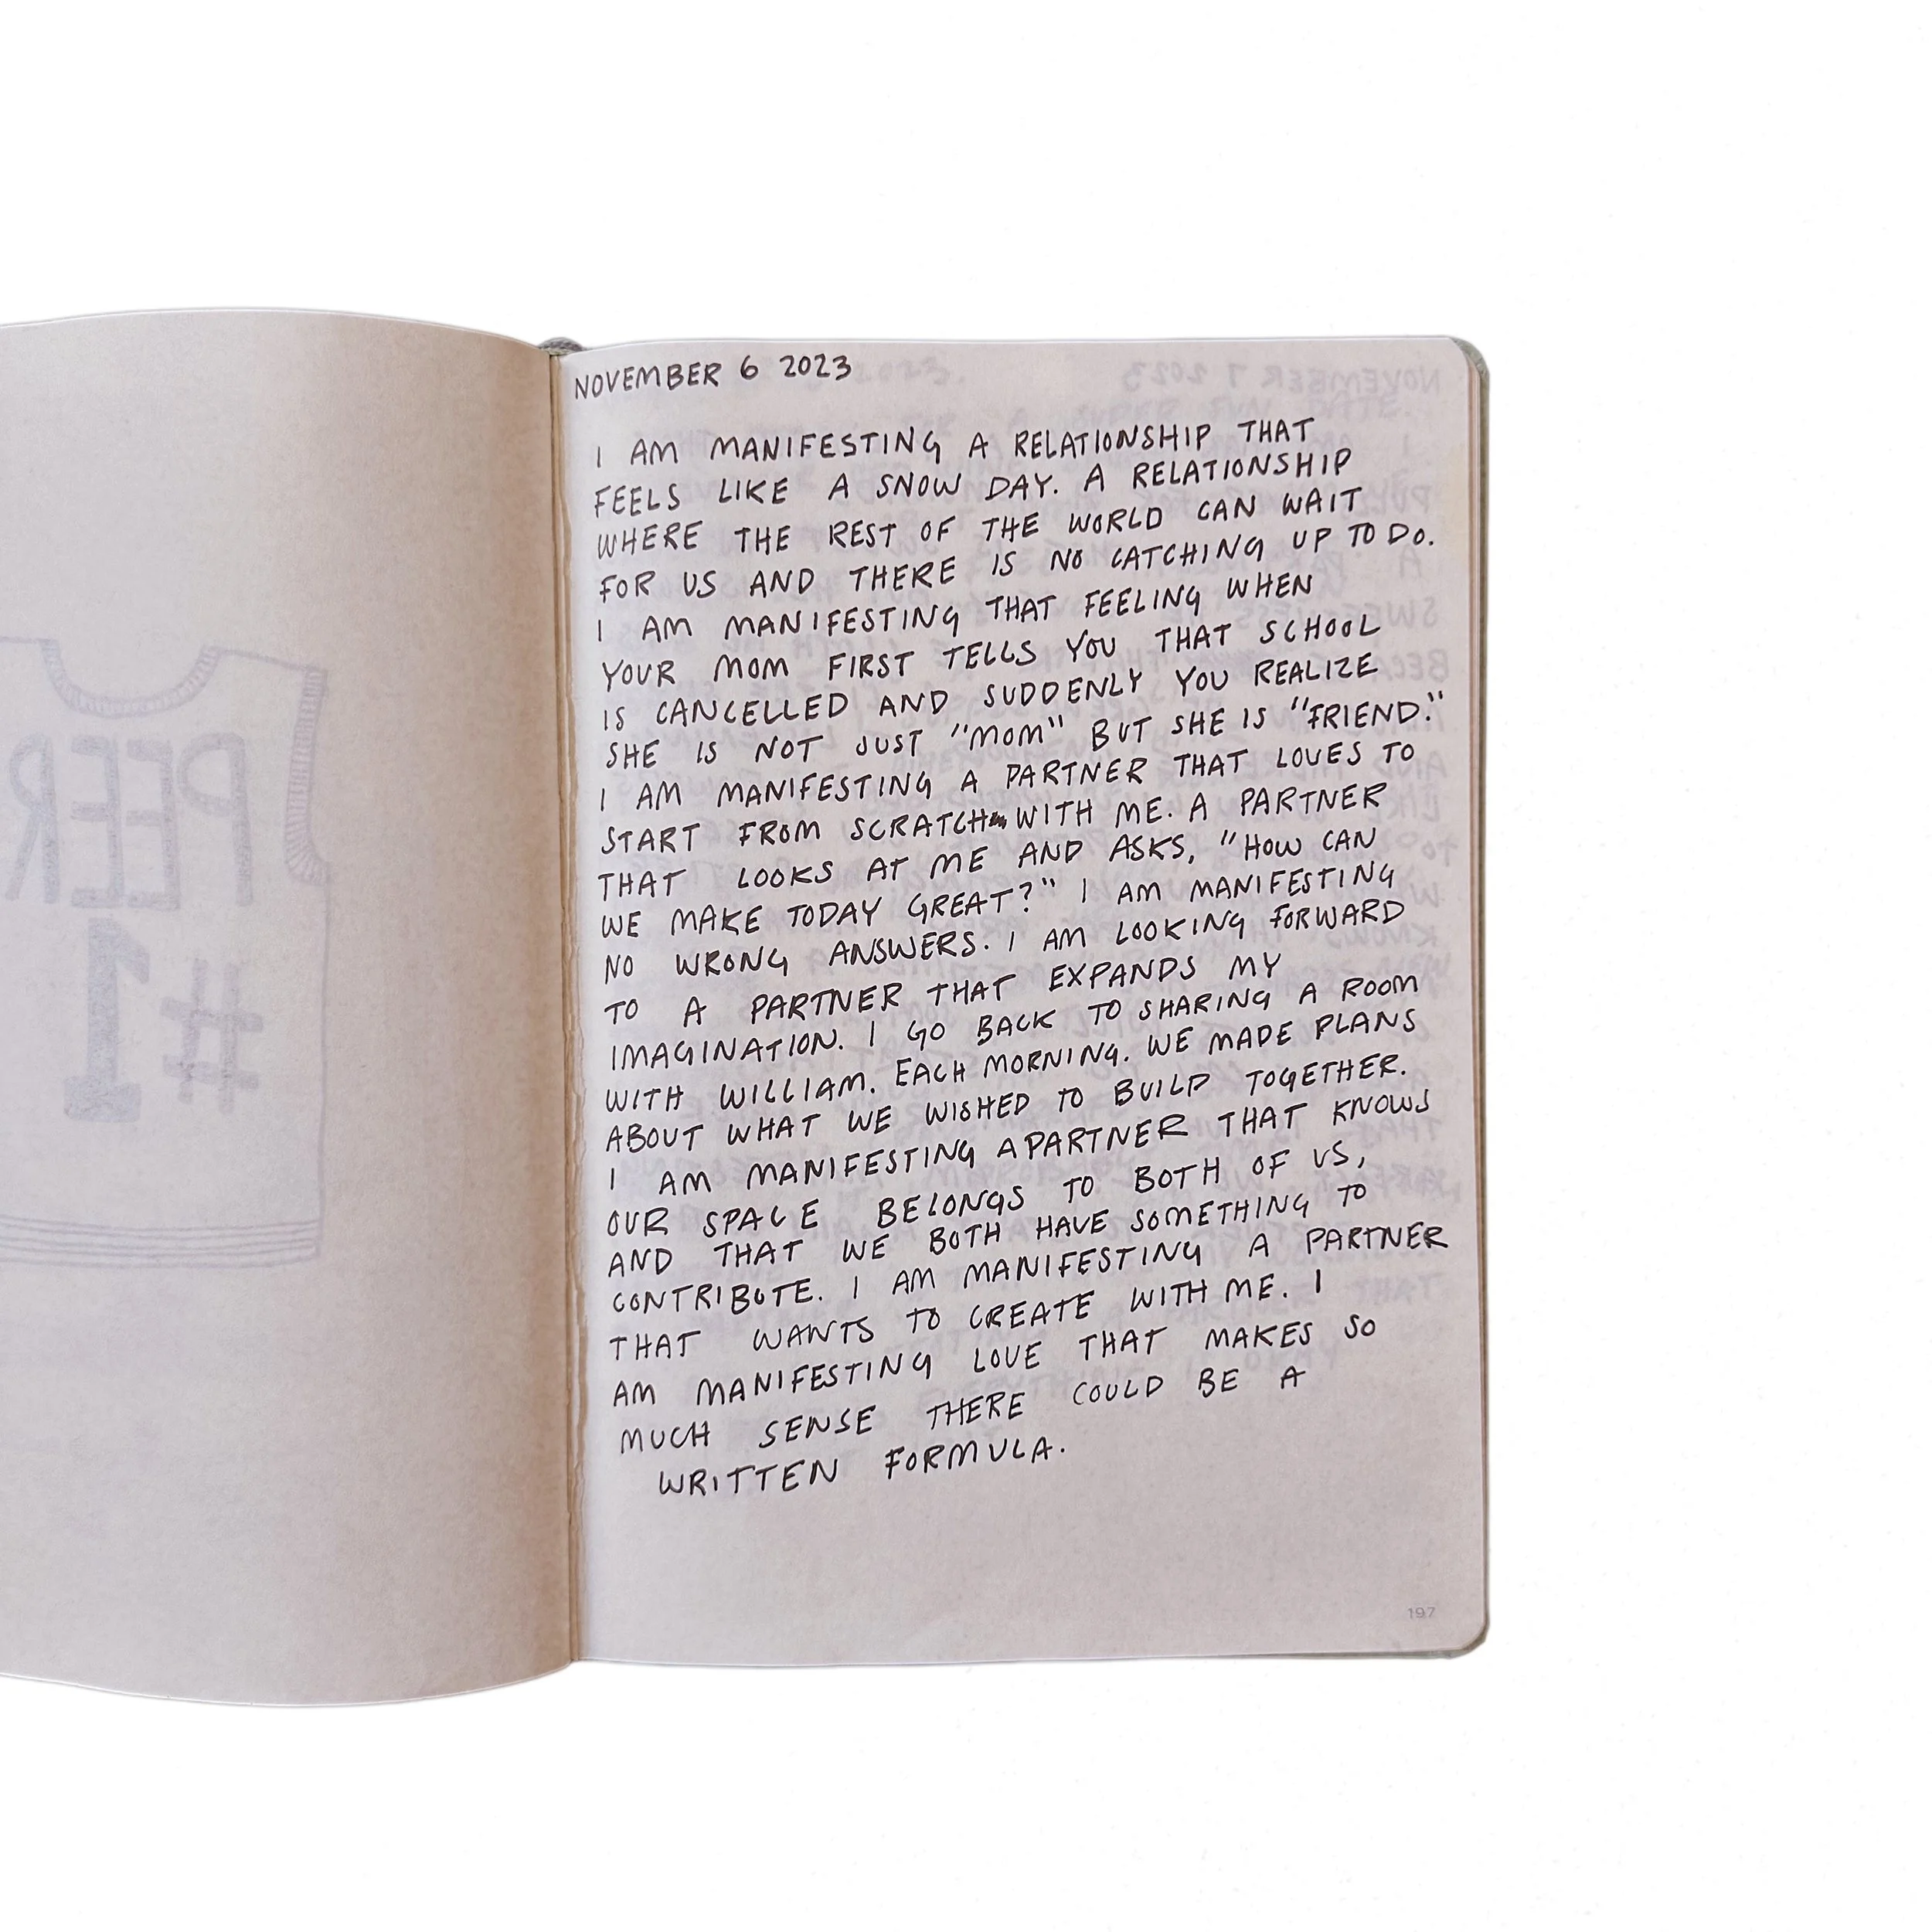 PEER
#1
NOVEMBER 6 2023
I AM MANIFESTING A RELATIONSHIP THAT
FEELS LIKE A SNOW DAY. A RELATIONSHIP
WHERE THE REST OF THE WORLD CAN WAIT
FOR US AND THERE IS NO CATCHING UP TO DO.
I AM MANIFESTING THAT FEELING WHEN
YOUR MOM FIRST TELLS YOU THAT SCHOOL
IS CANCELLED AND SUDDENLY YOU REALIZE
SHE IS NOT JUST "MOM" BUT SHE IS "FRIEND."
I AM MANIFESTING A PARTNER THAT LOVES TO
START FROM SCRATCH WITH ME. A PARTNER
THAT LOOKS AT ME AND ASKS, "HOW CAN
WE MAKE TODAY GREAT?" I AM MANIFESTING
NO WRONG ANSWERS. I AM LOOKING FORWARD
TO A PARTNER THAT EXPANDS MY
IMAGINATION. I GO BACK TO SHARING A ROOM
WITH WILLIAM. EACH MORNING. WE MADE PLANS
ABOUT WHAT WE WISHED TO BUILD TOGETHER.
I AM MANIFESTING A PARTNER THAT KNOWS
OUR SPACE BELONGS TO BOTH OF US,
AND THAT WE BOTH HAVE SOMETHING TO
CONTRIBUTE. I AM MANIFESTING A PARTNER
THAT WANTS TO CREATE WITH ME. I
AM MANIFESTING LOVE THAT MAKES SO
MUCH SENSE THERE COULD BE A
WRITTEN FORMULA.
197